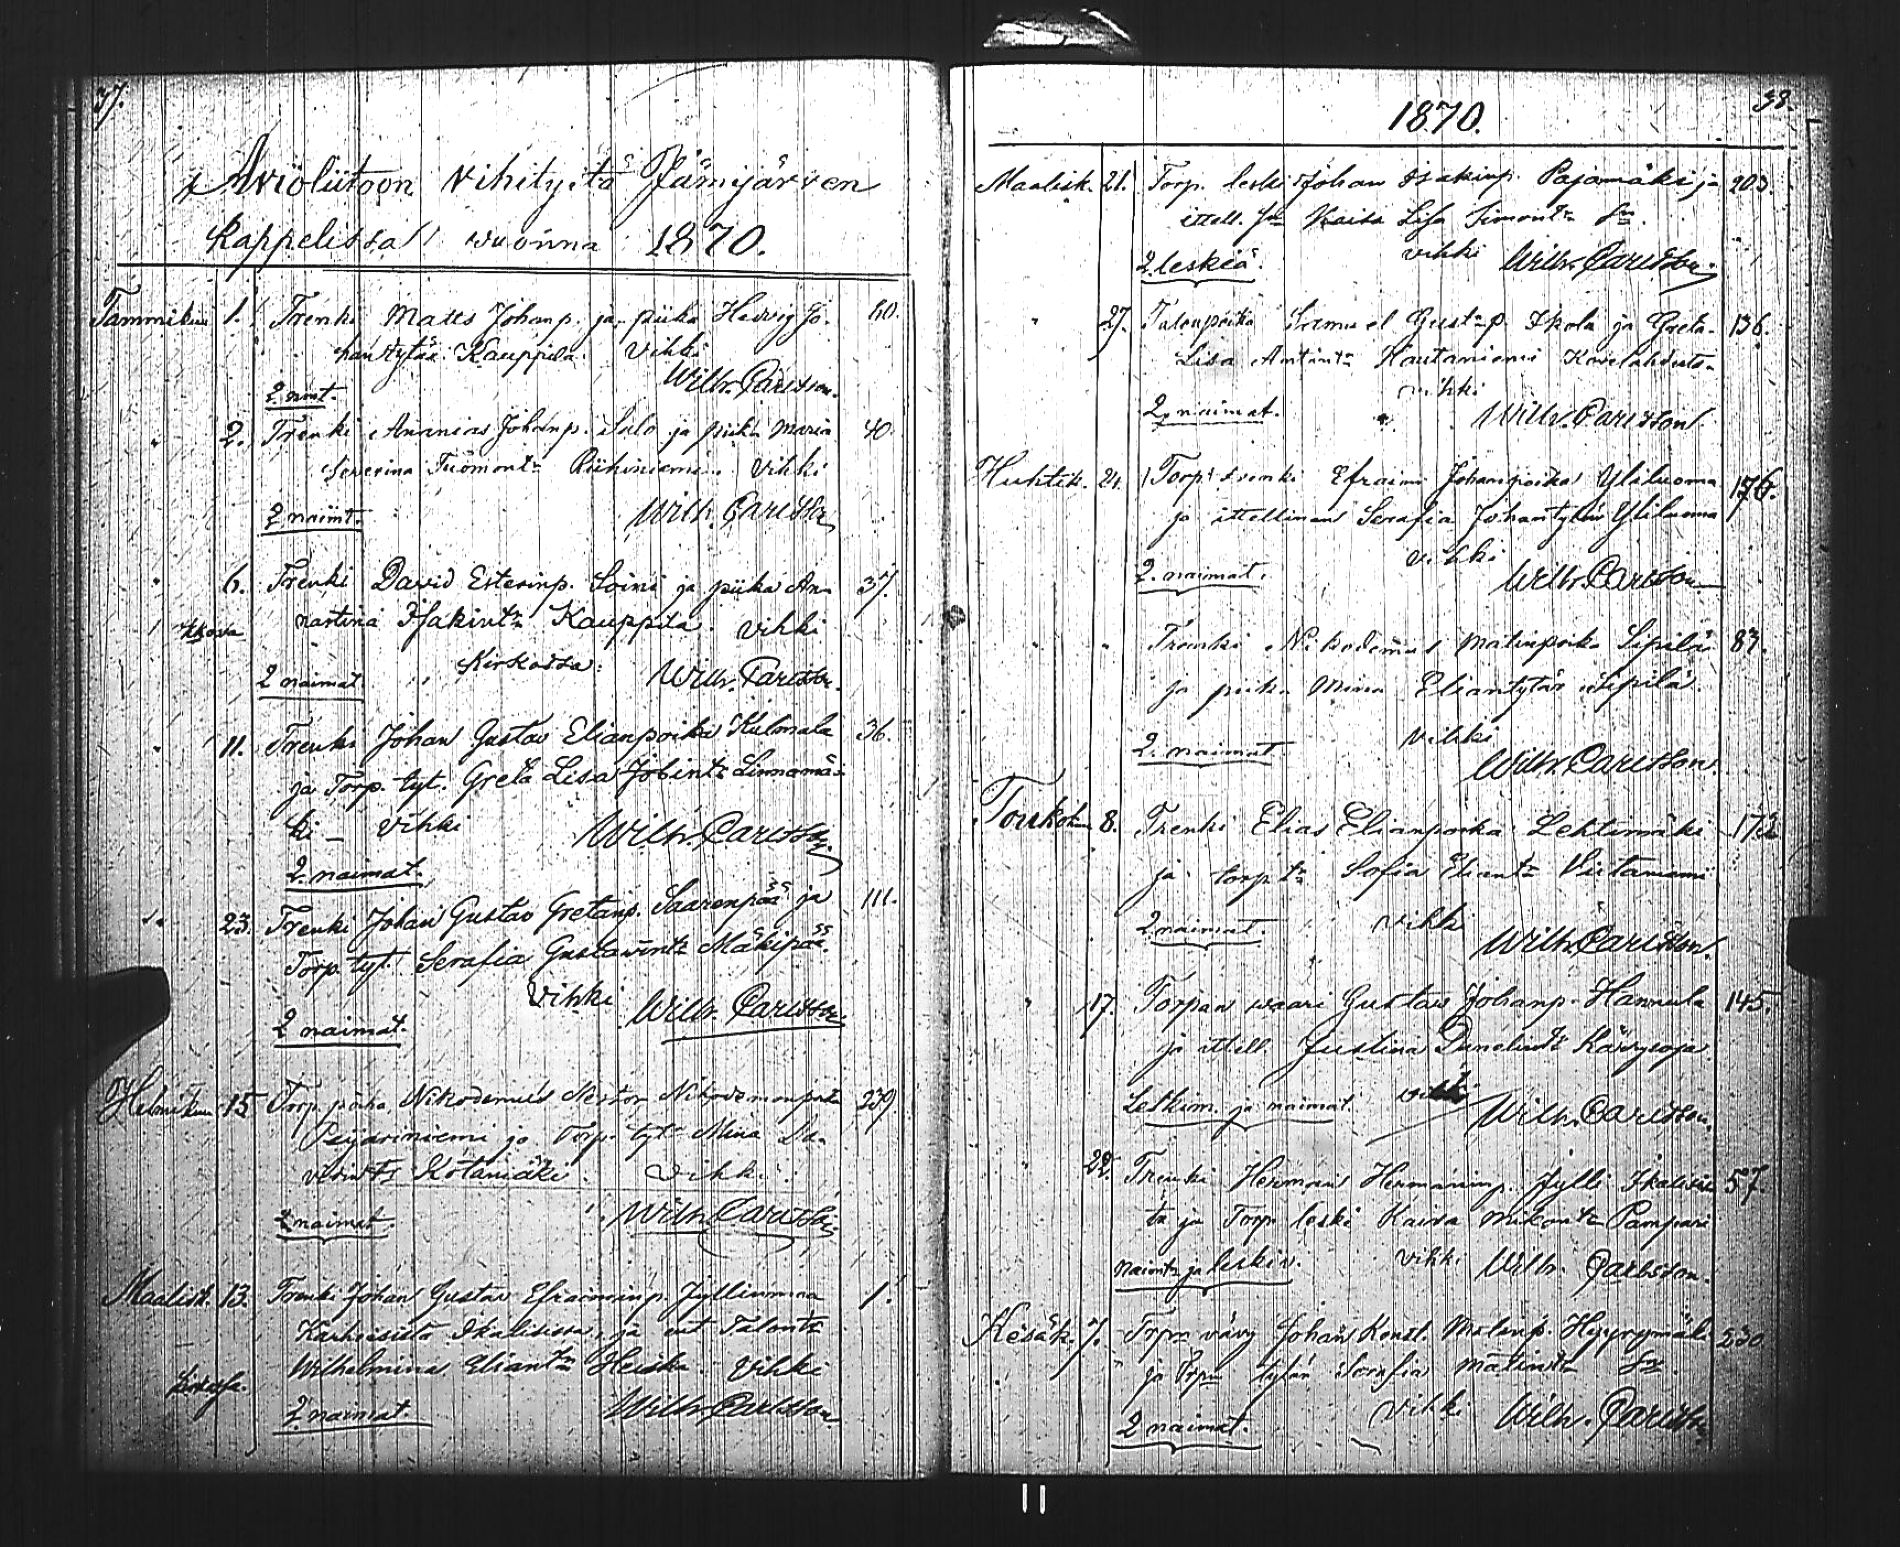 37.
Aviöliitoon Vihityitä Jämijärven
kappelissa wuonna 1870.
Tammikuu 1. Trenki Matts Johanp. ja piika Hedvig Jo- 60.
hantytär Kauppila. Vihki
2 naimt. Wilh. Carlsson.
" 2. Trenki Ananias Johanp. Salo ja piika Maria 40.
Severina Tuomontr Riihiniemi. Vihki
2 naimt. Wilh. Carlsson
" 6. Trenki David Esterinp. Soini ja piika An- 37.
nastina Isakintr Kauppila. Vihki
2 naimat Kirkossa: Wilh. Carlsson.
" 11. Trenki Johan Gustav Elianpoika Kulmala 36.
ja Torp. tyt. Greta Lisa Jobintr Linnamä-
ki – Vihki Wilh. Carlsson
2. naimat.
" 23. Trenki Johan Gustav Gretanp. Saarenpää ja 111.
Torp. tyt. Serafia Gustavintr Mäkipää.
Vihki Wilh. Carlsson
2 naimat.
Helmikuu 15 Torp. poika Nikodemus Nestor Nikodemonpoika 239
ja Torp. tytr Mina Da-
vidintr Kotamäki. Vihki
2 naimat. Wilh. Carlsson
Maalisk. 13. Trenki Johan Gustav Efraiminp. Jylliumaa 1.
Ikalisissa, ja ent Talontr
Wilhelmina Eliantr Heiska. Vihki
2 naimat Wilh. Carlsson
38.
1870.
Maalisk. 21. Torp. leski Johan Isakinp. Pajamäki ja 203.
ittell. Kaisa Lisa Simontr
2. leskeä. Vihki Wilh. Carlsson.
" 27. Talonpoika Samuel Gustp. Ikola ja Greta- 136.
Lisa Antintr Hautaniemi
vihki
2. naimat. Wilh. Carlsson
Huhtik. 24. Torp. trenki Efraim Johanpoika Yliluoma 176.
ja ittellinen Serafia Johantytär Yliluoma
vihki
2. naimat. Wilh. Carlsson
" " Trenki Nikodemus Matinpoika Sipilä 83.
ja piika Mina Eliantytär Sipilä.
Vihki
2. naimat Wilh. Carlsson.
Toukokuu 8. Trenki Elias Elianpoika Lehtimäki 172
ja torp. tr Sofia Eliantr Viitaniemi
2 naimat. vihki Wilh. Carlsson.
" 17. Torpan waari Gustav Johanp. Hannula 145.
ja ittell. Justina Danelintr
Leskim. ja naimat. vihki Wilh. Carlsson.
" 22. Trenki Herman Hermaninp. Jylli Ikalisis- 57.
ta ja Torp. leski Kaisa Mikontr Pampari
Naimt. ja leskiv. Vihki Wilh. Carlsson.
Kesäk. 7. Torpn vävy Johan Konst. Matinp. Hyyrymäki 230
ja Torpn tytär Serafia Matintr
2 naimat. Vihki Wilh. Carlsson.